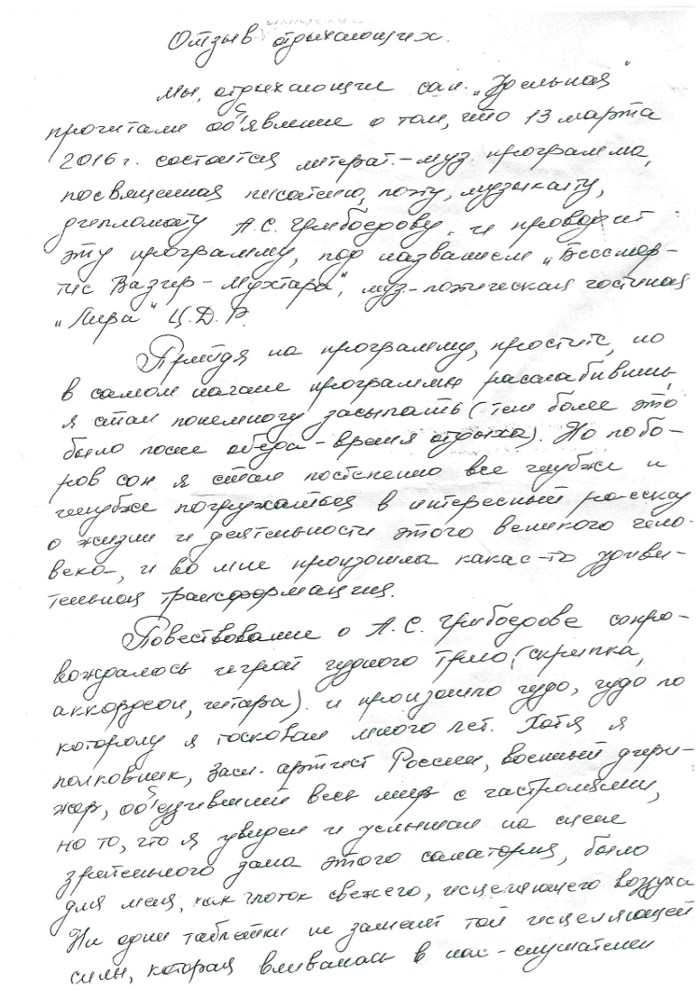 Отзыв отдыхающих.
Мы, отдыхающие сан. „Удельная"
прочитали об'явление о том, что 13 марта
2016 г. состоится литерат.-муз. программа,
посвященная писателю, поэту, музыканту,
дипломату А.С. Грибоедову, и проводит
эту программу, под названием „Бессмер-
тие Вазир-Мухтара", муз.-поэтическая гостиная
„Лира" Ц.Д.Р.
Прийдя на программу, простите, но
в самом начале программы расслабившись,
я стал понемногу засыпать (тем более это
было после обеда - время отдыха). Но побо-
ров сон я стал постепенно все глубже и
глубже погружаться в интересный рассказ
о жизни и деятельности этого великого чело-
века, и во мне произошла какая-то удиви-
тельная трансформация.
Повествование о А.С. Грибоедове сопро-
вождалось игрой чудного трио, (скрипка,
аккордеон, гитара). и произошло чудо, чудо по
которому я тосковал много лет. Хотя я
полковник, засл. артист России, военный дири-
жер, об'ездивший весь мир с гастролями,
но то, что я увидел и услышал на сцене
зрительного зала этого санатория, было
для меня, как глоток свежего, исцеляющего воздуха
Ни одни таблетки не заменят той исцеляющей
силы, которая вливалась в нас - слушателей